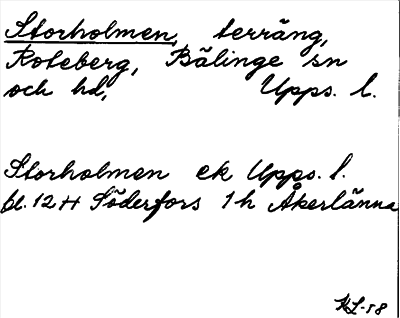 Storholmen, terräng,
Roteberg, Bälinge sn
och hd, Upps. l.
Storholmen ek Upps. l.
bl. 12 H Söderfors 1 h Åkerlänna
HL-58